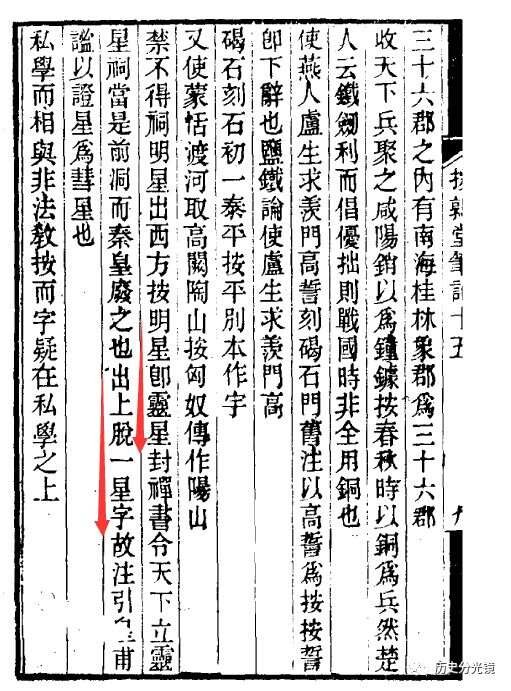 三十六郡之內有南海桂林象郡爲三十六郡
收天下兵聚之咸陽銷以爲鐘鐻按春秋時以銅爲兵然楚
人云鐵劒利而倡優拙則戰國時非全用銅也
使燕人盧生求羡門高誓刻碣石門舊注以高誓爲按按誓
卽下辭也鹽鐵論使盧生求羨門高
碣石刻石初一泰平按平別本作字
又使蒙恬渡河取高闕陶山按匈奴傳作陽山
禁不得祠明星出西方按明星卽靈星封禪書令天下立靈
星祠當是前洞而秦皇廢之也出上脫一星字故注引皇甫
謐以證星爲彗星也
私學而相與非法教按而字疑在私學之上
援鶉堂筆記十五
历史分光镜